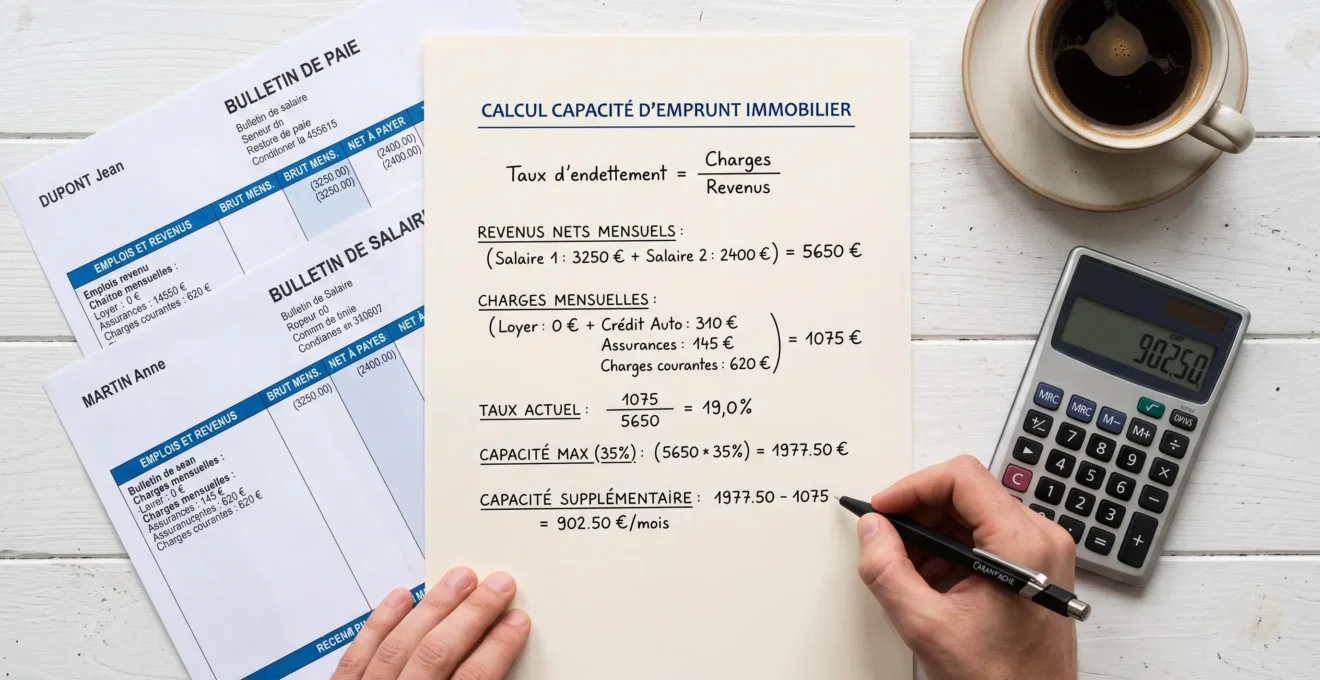 BULLETIN DE PAIE
Bulletin de salaire
Seneur dn
Restore de paie
Conditoner la 455615
DUPONT Jean
EMPLOIS ET REVENUS
BRUT MENS.
BRUT MENS.
NET À PAYER
(3250.00)
(3250.00)
(2400.00)
(2400.00)
Emplois revenu
Chaitoe mensuelles :
Loyer : 0 €
Assurances : 14550 €
Charges courantes : 620 €
BULLETIN DE SALAIR
Bulletin de Salaire
Ropeur o0
MARTIN Anne
EMPLOIS ET REVENUS
BRUT MENS.
NET À PAYES
NET À
(3250.00)
(2400.00)
Charges mensuelles :
Charges mensuelles :
Assurances : 145 €
620 €
Charges courantes : 620 €
CALCUL CAPACITÉ D'EMPRUNT IMMOBILIER
Taux d'endettement = Charges
Revenus
REVENUS NETS MENSUELS :
(Salaire 1 : 3250 € + Salaire 2 : 2400 €) = 5650 €
CHARGES MENSUELLES :
(Loyer : 0 € + Crédit Auto : 310 €
Assurances : 145 €
Charges courantes : 620 €) = 1075 €
TAUX ACTUEL : 1075
5650 = 19,0%
CAPACITÉ MAX (35%) : (5650 * 35%) = 1977.50 €
CAPACITÉ SUPPLÉMENTAIRE : 1977.50 - 1075
= 902.50 €/mois
CARAN D'ACHE
902.50
MRC MRC M- M+
+/- 7 8 9 ÷
4 5 6 ×
C 1 2 3 −
0 . = +